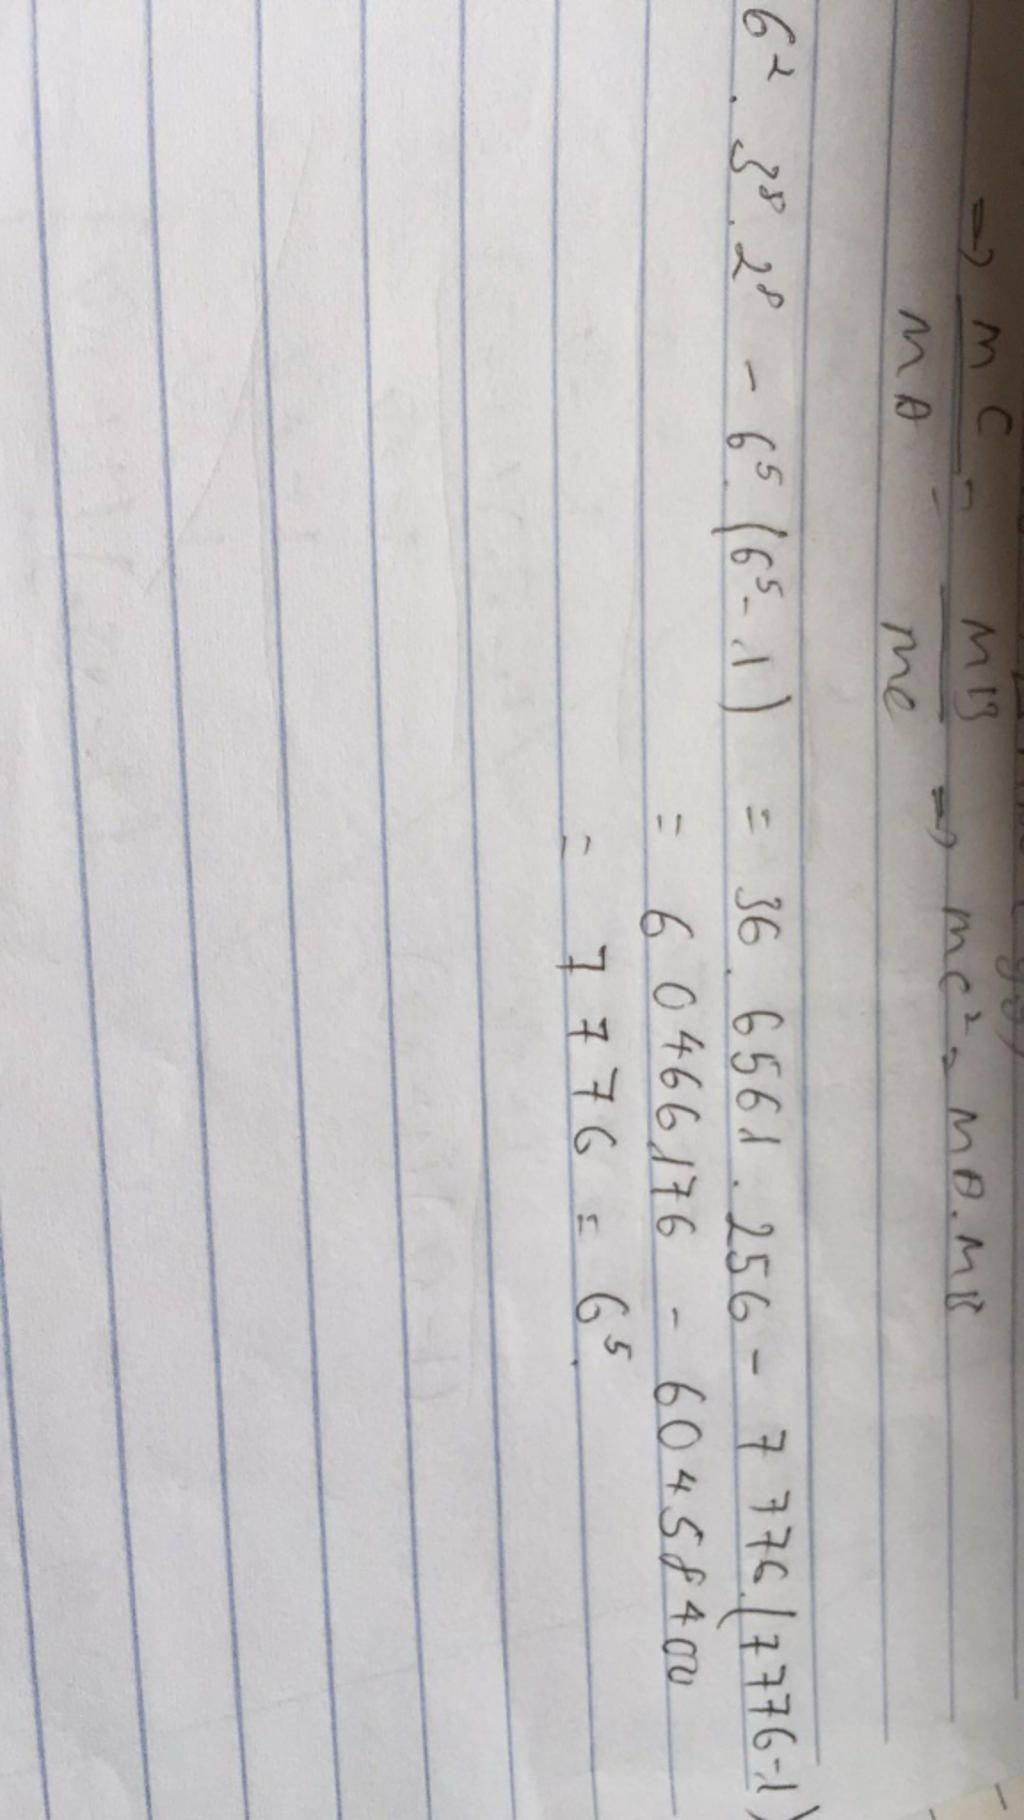 =) MC = MB
MA MC =) MC² = MA.MB
6² . 3⁸ . 2⁸ - 6⁵ (6⁵ - 1) = 36 . 6561 . 256 - 7776 . (7776 - 1)
= 60466176 - 60458400
= 7776 = 6⁵.